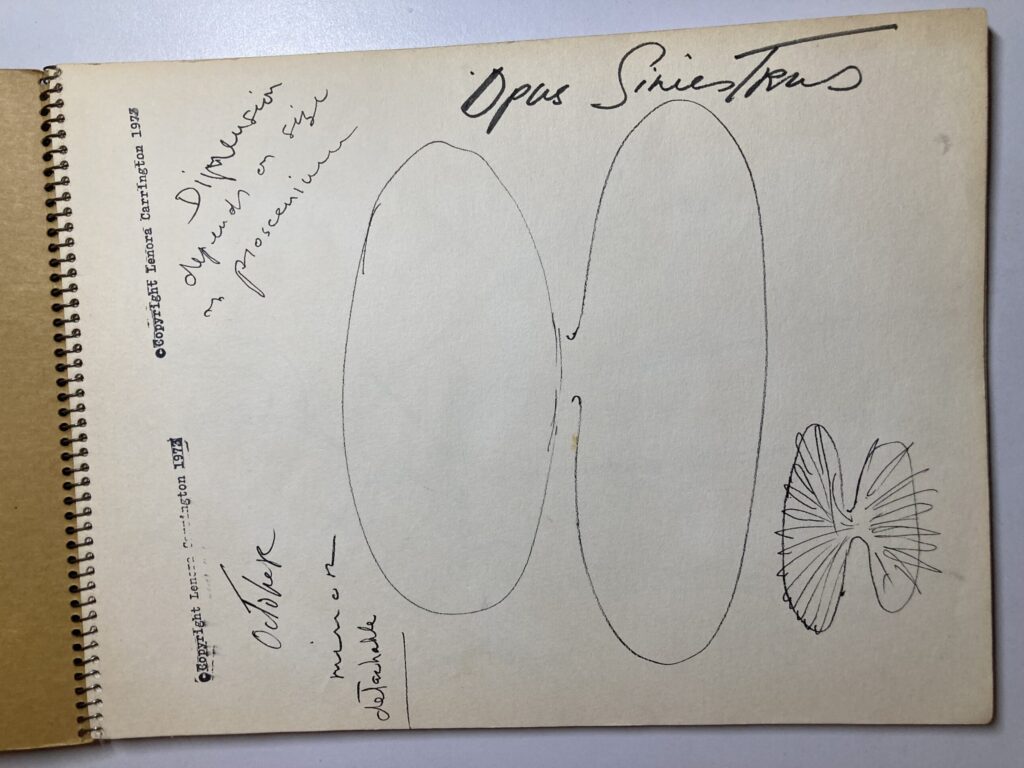 Opus Siniestrus
©Copyright Lenora Carrington 1973
Dimension
depends on size
proscenium
©Copyright Lenora Carrington 1973
October
mirror
detachable